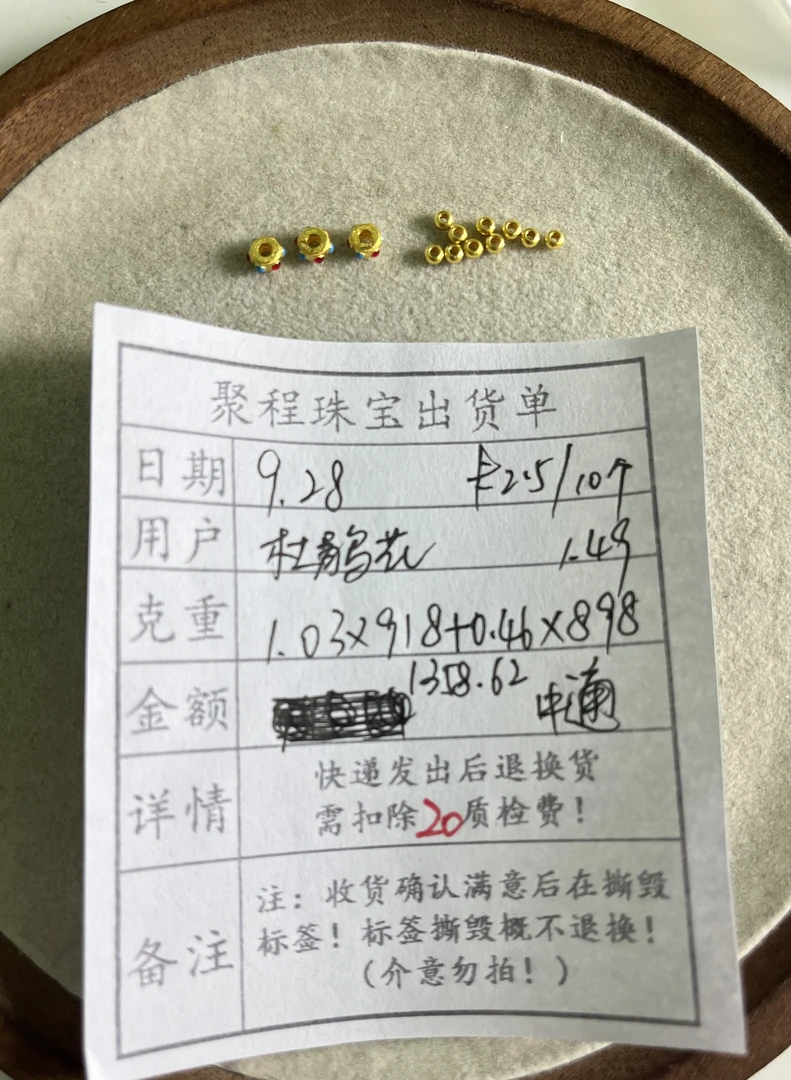 聚程珠宝出货单
日期 9.28 卡2.5/10个
用户 杜鹃花 1.49
克重 1.03×918+0.46×898
金额 1358.62 中通
详情 快递发出后退换货
需扣除20质检费！
备注 注：收货确认满意后在撕毁
标签！标签撕毁概不退换！
（介意勿拍！）